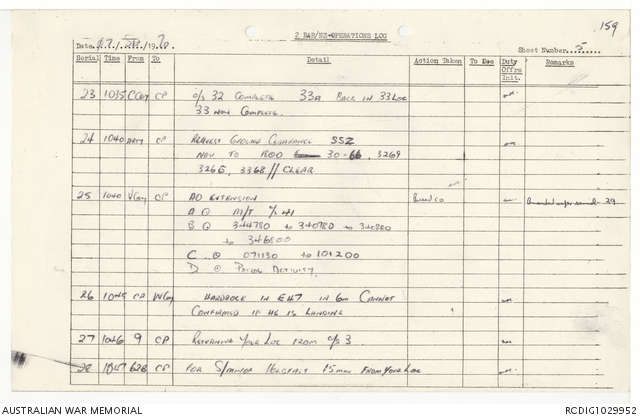 159
2 RAR/NZ-OPERATIONS LOG
Date. 07/ /19 70.
Sheet Number. 5
Serial Time From To Detail Action Taken To Men Duty Offrs Init. Remarks
23 1035 CCoy CP C/S 32 COMPLETE 33A BACK IN 33 LOC
33 NOW COMPLETE.
24 1040 ARTY CP REQUEST GROUND CLEARANCE SSZ
NOW TO 1800 30-66, 3269
3268, 3368 // CLEAR
25 1040 VCoy CP AO EXTENSION
A @ M/T 41
B @ 344780 to 340780 to 340800
to 346800
C @ 071130 to 101200
D @ PATROL ACTIVITY.
26 1045 CP WCoy HARDROCK IN EH7 IN 6m CANNOT
CONFIRMED IF HE IS LANDING
27 1046 9 CP RETURNING YOUR LOC FROM C/S 3.
28 1047 62B CP FOR S/MINOR 15 min FROM YOUR LOC
AUSTRALIAN WAR MEMORIAL
RCDIG1029952